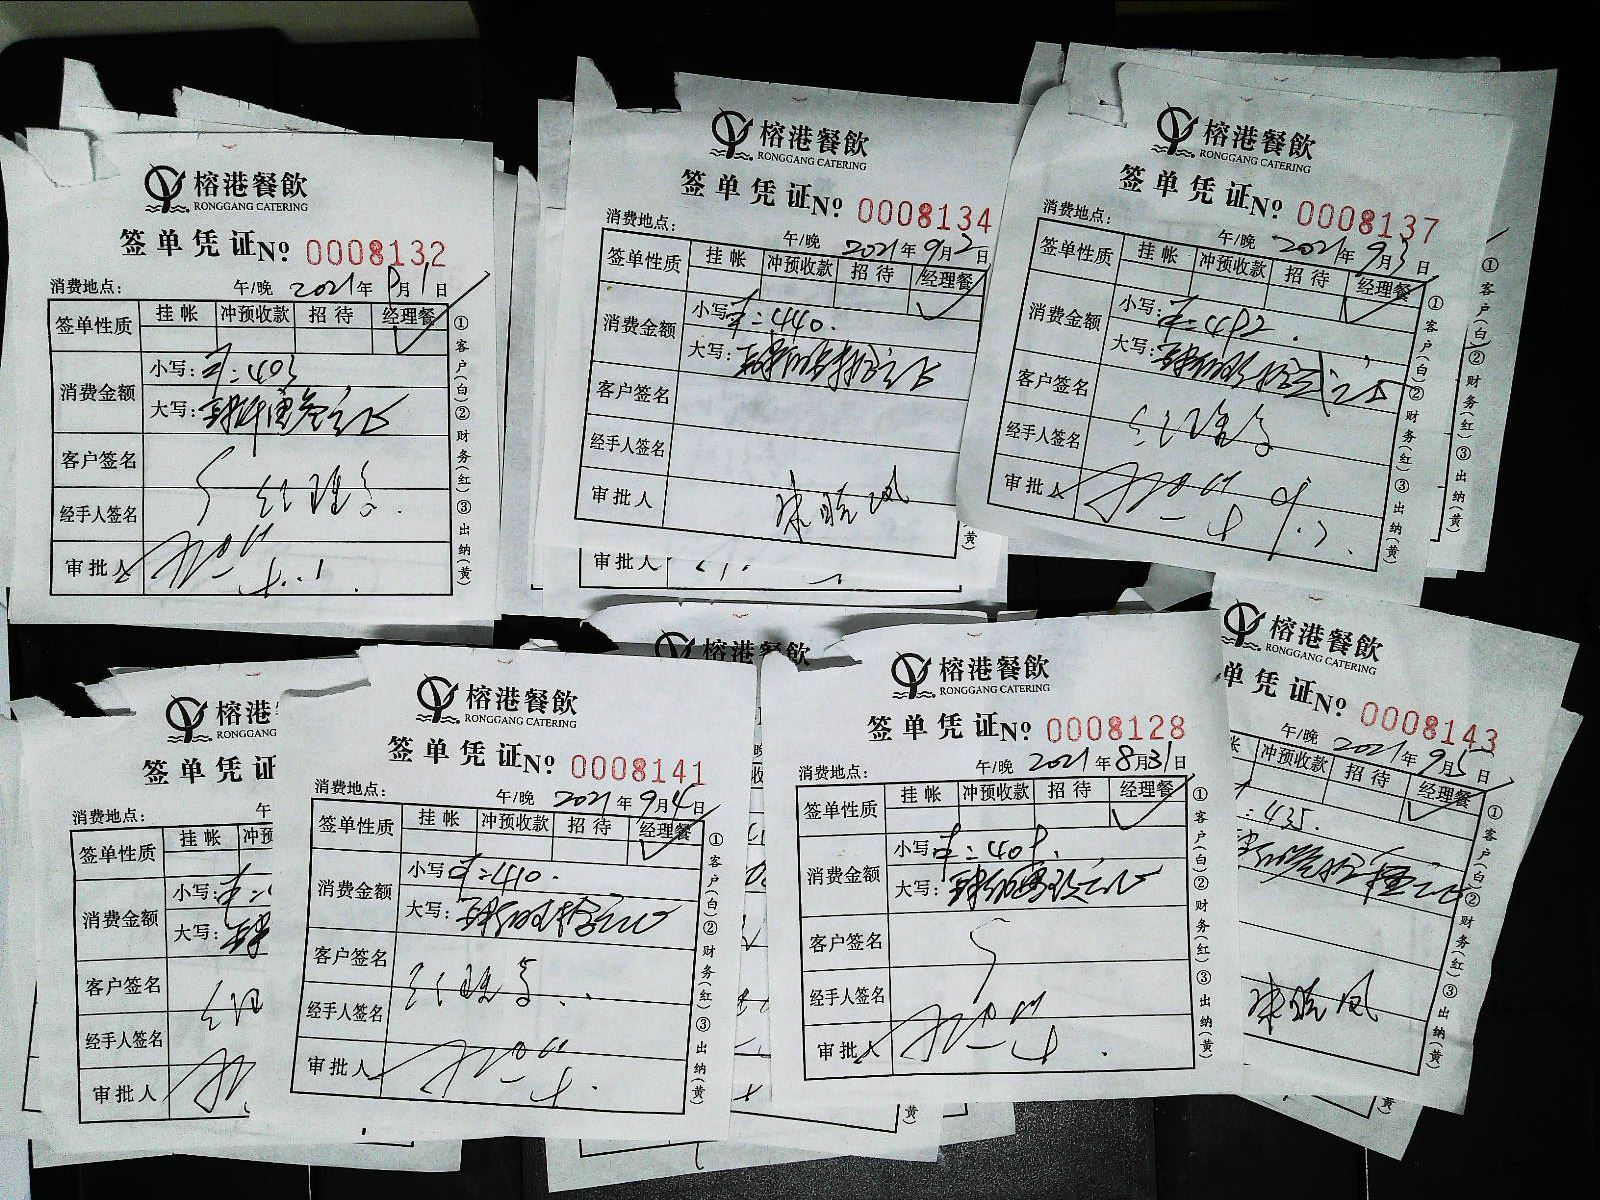 榕港餐飲
RONGGANG CATERING
签单凭证№ 0008132
消费地点: 午/晚 2021年9月1日
签单性质 挂帐 冲预收款 招待 经理餐
消费金额 小写: 403
大写: 肆佰零叁元正
客户签名
经手人签名
审批人
①客户(白)②财务(红)③出纳(黄)
榕港餐飲
RONGGANG CATERING
签单凭证№ 0008134
消费地点: 午/晚 2021年9月2日
签单性质 挂帐 冲预收款 招待 经理餐
消费金额 小写: 440.
大写: 肆佰肆拾元正
客户签名
经手人签名
审批人
(黄)
审批人
榕港餐飲
RONGGANG CATERING
签单凭证№ 0008137
消费地点: 午/晚 2021年9月3日
签单性质 挂帐 冲预收款 招待 经理餐
消费金额 小写:
大写:
客户签名
经手人签名
审批人
9.3.
①客户(白)②财务(红)③出纳(黄)
①客户(白)②财务(红)③出纳(黄)
榕港
RONGGANG
签单凭证
消费地点: 午
签单性质 挂帐 冲预
消费金额 小写:
大写: 肆
客户签名
经手人签名
审批人
榕港餐飲
RONGGANG CATERING
签单凭证№ 0008141
消费地点: 午/晚 2021年9月4日
签单性质 挂帐 冲预收款 招待 经理餐
消费金额 小写: 410.
大写: 肆佰壹拾元正
客户签名
经手人签名
审批人
①客户(白)②财务(红)③出纳(黄)
榕港餐飲
(黄)
榕港餐飲
RONGGANG CATERING
签单凭证№ 0008128
消费地点: 午/晚 2021年8月31日
签单性质 挂帐 冲预收款 招待 经理餐
消费金额 小写:
大写:
客户签名
经手人签名
审批人
①客户(白)②财务(红)③出纳(黄)
榕港餐飲
RONGGANG CATERING
单凭证№ 0008143
午/晚 2021年9月5日
帐 冲预收款 招待 经理餐
435.
①客户(白)②财务(红)③出纳(黄)
(黄)